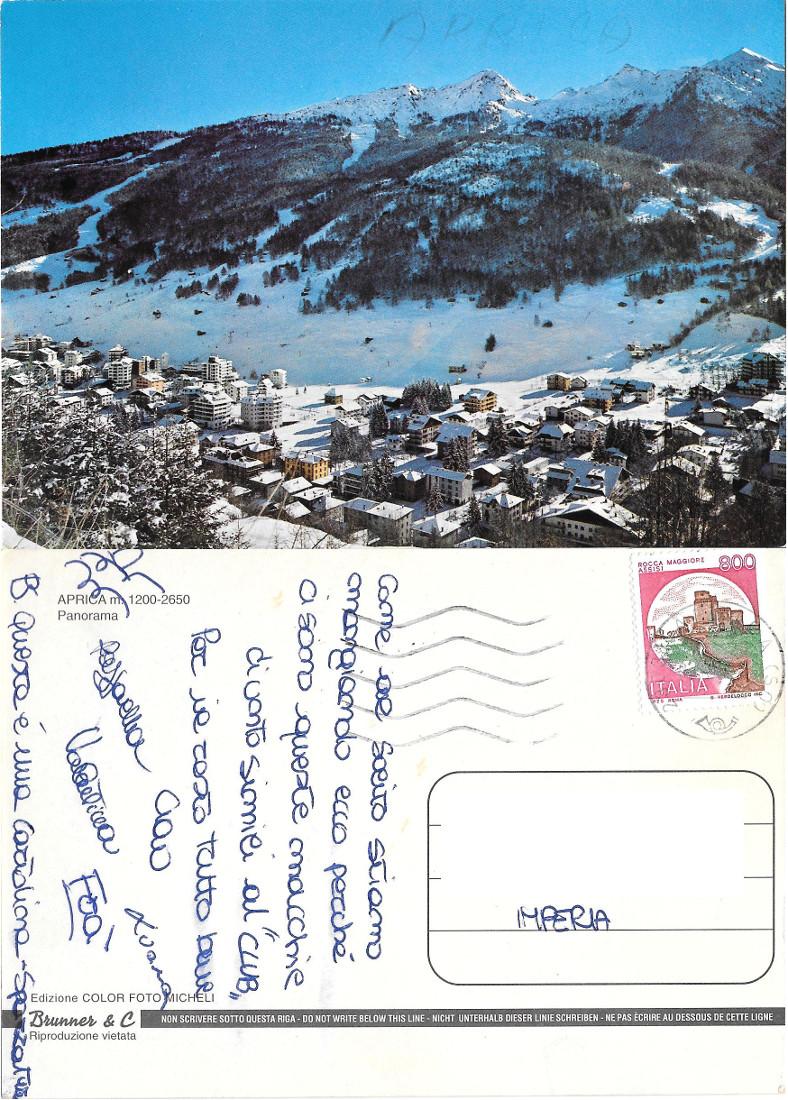 APRICA
APRICA m. 1200-2650
Panorama
ROCCA MAGGIORE
ASSISI
800
ITALIA
Come al solito stiamo
mangiando ecco perché
ci sono queste macchie
di unto simili al "CLUB"
Per il resto tutto bene
Ciao Luana
Valentina
Foà
B Questa è una cartolina - Spazzatura
IMPERIA
Edizione COLOR FOTO MICHELI
Brunner & C
Riproduzione vietata
NON SCRIVERE SOTTO QUESTA RIGA - DO NOT WRITE BELOW THIS LINE - NICHT UNTERHALB DIESER LINIE SCHREIBEN - NE PAS ÉCRIRE AU DESSOUS DE CETTE LIGNE